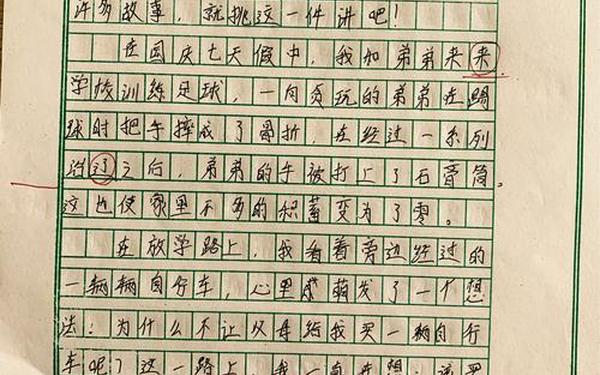 许多故事，就挑这一件讲吧！
在国庆七天假中，我和弟弟来来
学校训练足球，一向贪玩的弟弟在踢
球时把手摔成了骨折，在经过一系列
治辽之后，弟弟的手被打上了石膏筒。
这也使家里不多的积蓄变为了零。
在放学路上，我看着旁边经过的
一辆辆自行车，心里萌发了一个想
法：为什么不让父母给我买一辆自行
车呢？这一路上，我一直在想，